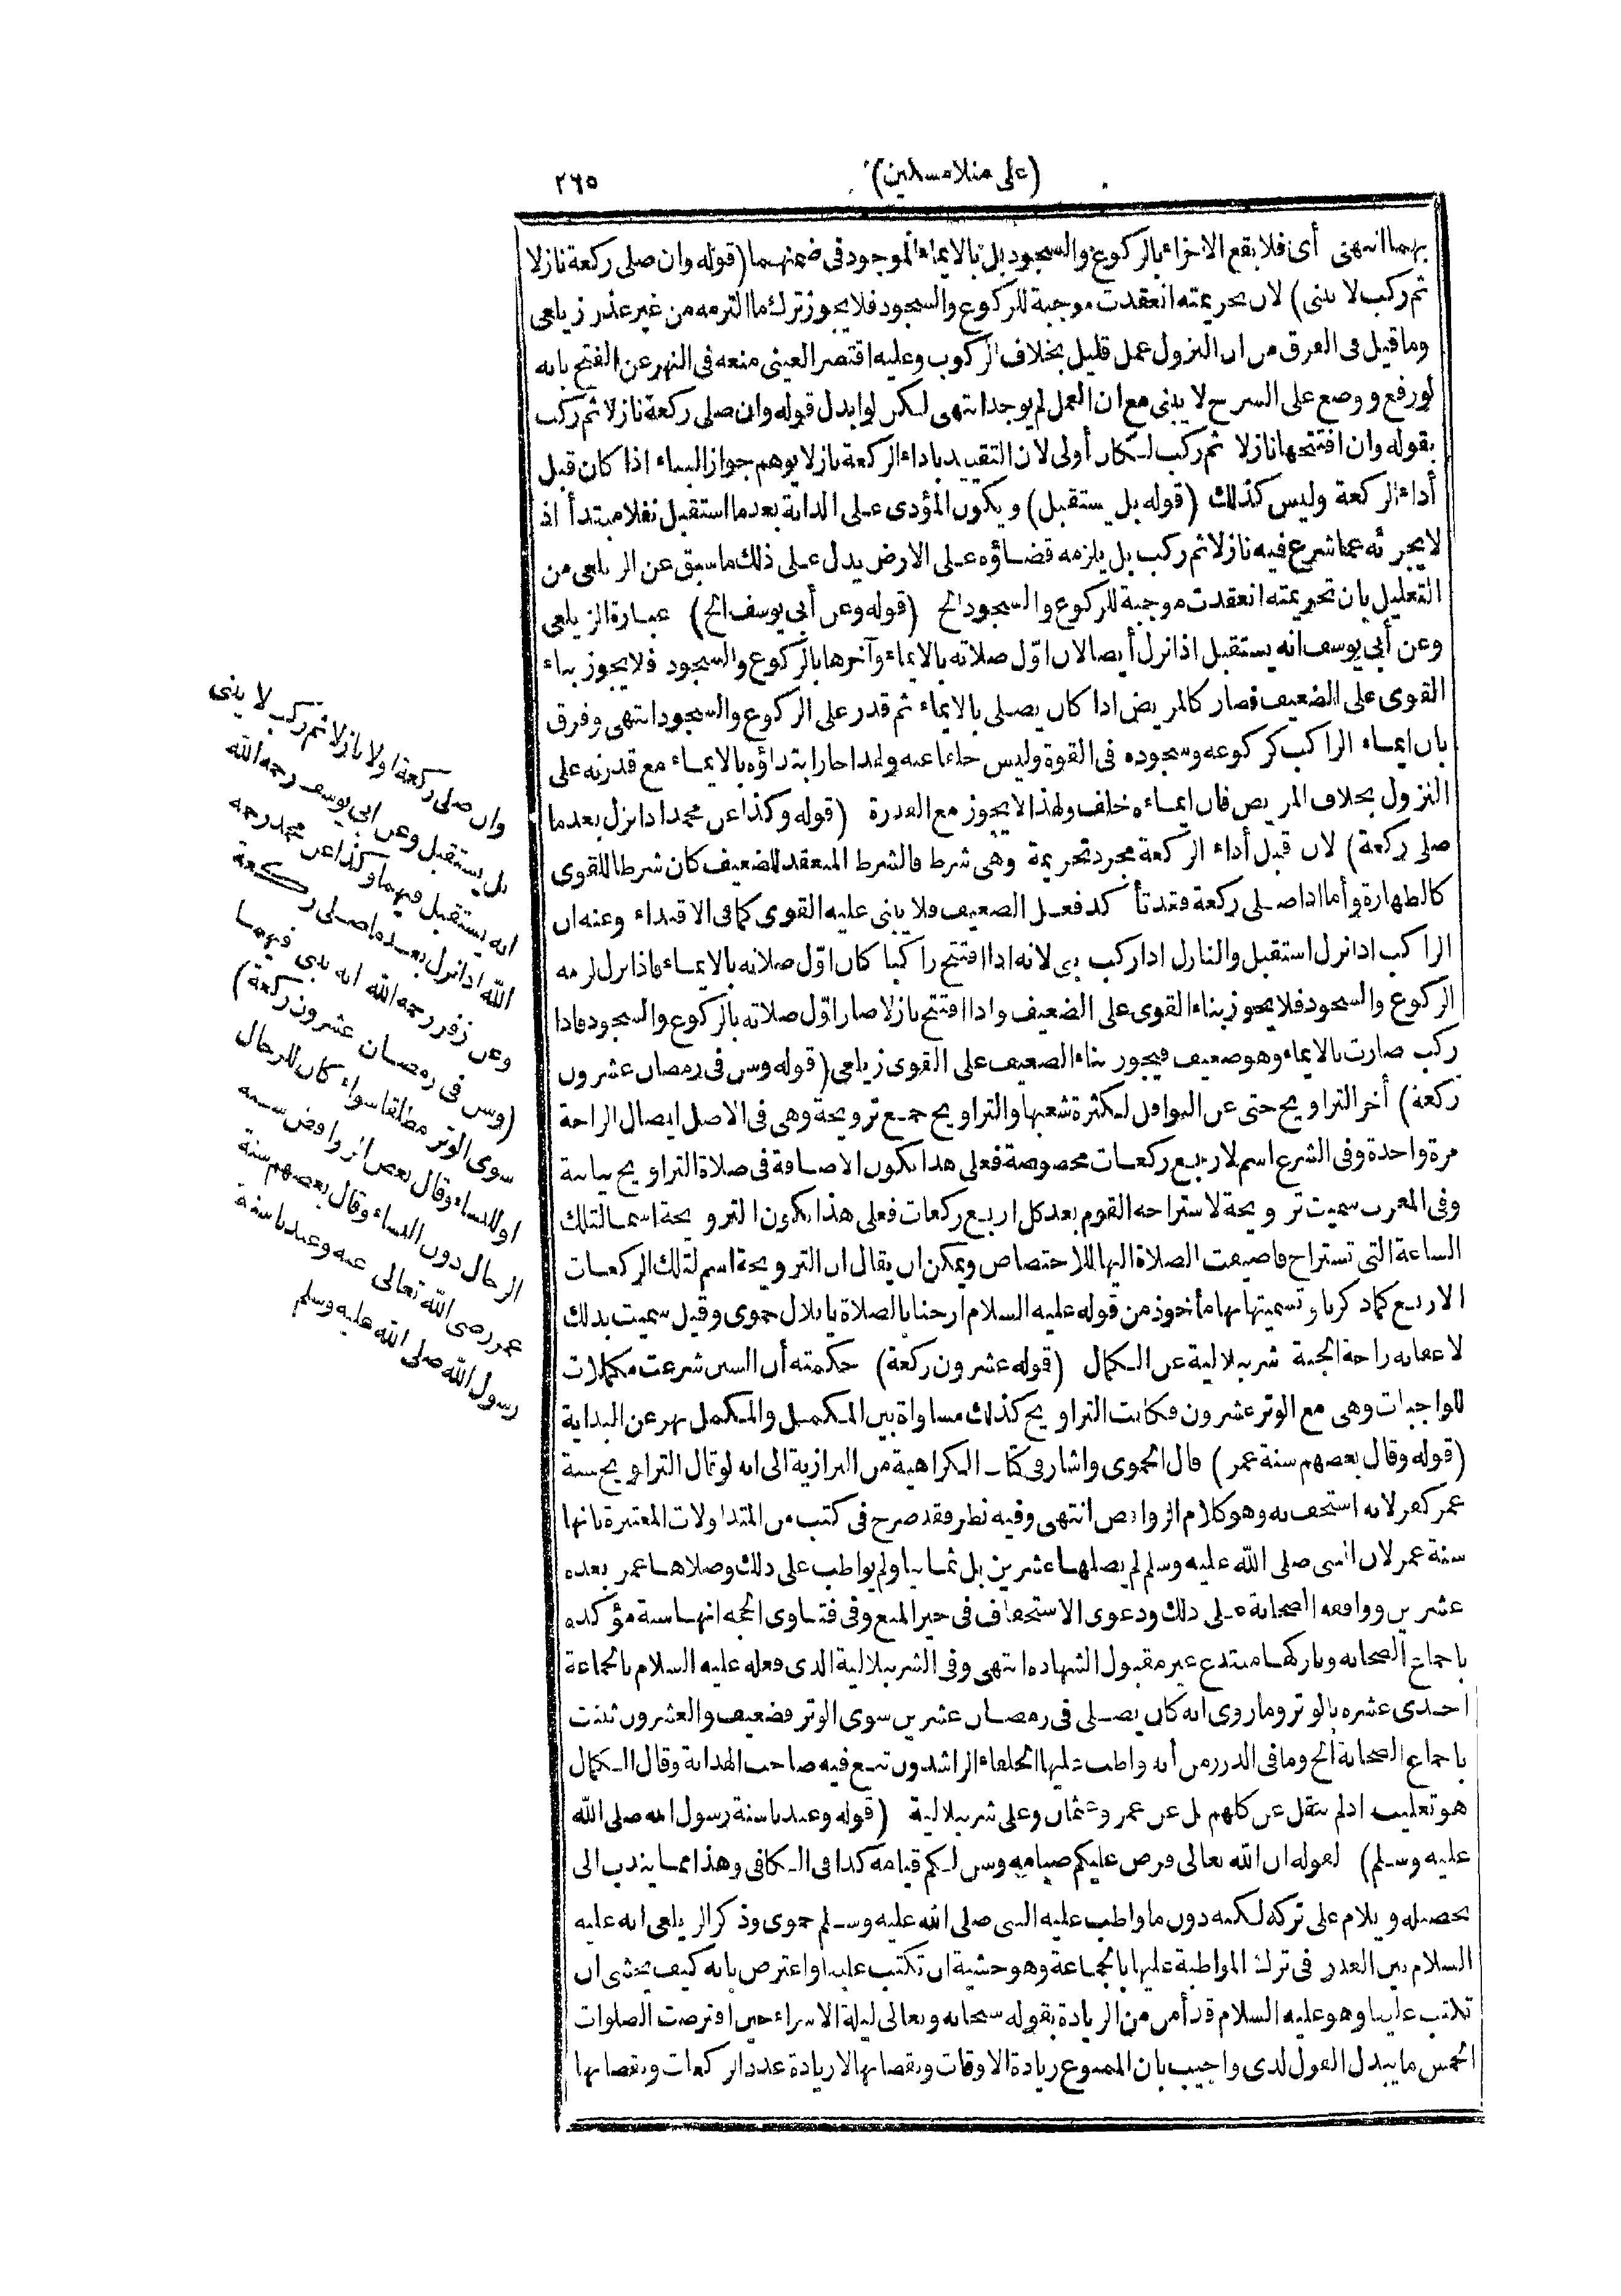 (على منلا مسكين)
٢٦٥
بهما انتهى أى فلا يقع الاجزاء بالركوع والسجود بل بالايماء الموجود فى ضمنهما (قوله وان صلى ركعة نازلا
ثم ركب لا يبنى) لان تحريمته انعقدت موجبة للركوع والسجود فلا يجوز ترك ما التزمه من غير عذر زيلعى
وما قيل فى الفرق من ان النزول عمل قليل بخلاف الركوب وعليه اقتصر العينى منعه فى النهر عن الفتح بانه
لو رفع ووضع على السرج لا يبنى مع ان العمل لم يوجد انتهى لكن لو ابدل قوله وان صلى ركعة نازلا ثم ركب
بقوله وان افتتحها نازلا ثم ركب لكان أولى لان التقييد باداء الركعة نازلا يوهم جواز البناء اذا كان قبل
أداء الركعة وليس كذلك (قوله بل يستقبل) ويكون المؤدى على الدابة بعدما استقبل نفلا مبتدأ اذ
لا يجزئه عما شرع فيه نازلا ثم ركب بل يلزمه قضاؤه على الارض يدل على ذلك ما سبق عن الزيلعى من
التعليل بان تحريمته انعقدت موجبة للركوع والسجود الخ (قوله وعن أبى يوسف الخ) عبارة الزيلعى
وعن أبى يوسف انه يستقبل اذا نزل أيضا لان اوّل صلاته بالايماء وآخرها بالركوع والسجود فلا يجوز بناء
القوى على الضعيف فصار كالمريض اذا كان يصلى بالايماء ثم قدر على الركوع والسجود انتهى وفرق
بان ايماء الراكب كركوعه وسجوده فى القوة وليس خلفا عنه ولهذا جاز ابتداؤه بالايماء مع قدرته على
النزول بخلاف المريض فان ايماءه خلف ولهذا لا يجوز مع القدرة (قوله وكذا عن محمد اذا نزل بعدما
صلى ركعة) لان قبل أداء الركعة مجرد تحريمة وهى شرط فالشرط المنعقد للضعيف كان شرطا للقوى
كالطهارة وأما اذا صلى ركعة فقد تأكد فعل الضعيف فلا يبنى عليه القوى كما فى الاقتداء وعنه ان
الراكب اذا نزل استقبل والنازل اذا ركب بنى لانه اذا افتتح راكبا كان اوّل صلاته بالايماء فاذا نزل لزمه
الركوع والسجود فلا يجوز بناء القوى على الضعيف واذا افتتح نازلا صار اوّل صلاته بالركوع والسجود فاذا
ركب صارت بالايماء وهو ضعيف فيجوز بناء الضعيف على القوى زيلعى (قوله وسن فى رمضان عشرون
ركعة) أخر التراويح حتى عن النوافل لكثرة شعبها والتراويح جمع ترويحة وهى فى الاصل ايصال الراحة
مرة واحدة وفى الشرع اسم لاربع ركعات مخصوصة فعلى هذا تكون الاضافة فى صلاة التراويح بيانية
وفى المغرب سميت ترويحة لاستراحة القوم بعد كل اربع ركعات فعلى هذا تكون الترويحة اسما لتلك
الساعة التى تستراح فاضيفت الصلاة اليها للاختصاص ويمكن ان يقال ان الترويحة اسم لتلك الركعات
الاربع كما ذكرنا وتسميتها بها مأخوذ من قوله عليه السلام ارحنا بالصلاة يا بلال حموى وقيل سميت بذلك
لاعقابه راحة الجنة شرنبلالية عن الكمال (قوله عشرون ركعة) حكمته أن السنن شرعت مكملات
للواجبات وهى مع الوتر عشرون فكانت التراويح كذلك مساواة بين المكمل والمكمل نهر عن البداية
(قوله وقال بعضهم سنة عمر) قال الحموى واشار فى كتاب الكراهية من البزازية الى انه لو قال التراويح سنة
عمر كفر لانه استخف به وهو كلام الروافض انتهى وفيه نظر فقد صرح فى كتب من المتداولات المعتبرة بانها
سنة عمر لان النبى صلى الله عليه وسلم لم يصلها عشرين بل ثمانيا ولم يواظب على ذلك وصلاها عمر بعده
عشرين ووافقه الصحابة على ذلك ودعوى الاستخفاف فى حيز المنع وفى فتاوى الحجه انها سنة مؤكده
باجماع الصحابه وتاركها مبتدع غير مقبول الشهاده انتهى وفى الشرنبلالية الذى فعله عليه السلام بالجماعة
احدى عشره بالوتر وما روى انه كان يصلى فى رمضان عشرين سوى الوتر فضعيف والعشرون ثبتت
باجماع الصحابة الخ وما فى الدرر من أنه واظب عليها الخلفاء الراشدون تبع فيه صاحب الهداية وقال الكمال
هو تغليب اذ لم ينقل عن كلهم بل عن عمر وعثمان وعلى شرنبلالية (قوله وعندنا سنة رسول الله صلى الله
عليه وسلم) لقوله ان الله تعالى فرض عليكم صيامه وسن لكم قيامه كذا فى الكافى وهذا مما يندب الى
تحصيله ويلام على تركه لكنه دون ما واظب عليه النبى صلى الله عليه وسلم حموى وذكر الزيلعى انه عليه
السلام بين العذر فى ترك المواظبة عليها بالجماعة وهو خشية ان تكتب علينا واعترض بانه كيف يخشى ان
تكتب علينا وهو عليه السلام قد أمن من الزيادة بقوله سبحانه وتعالى ليلة الاسراء حين افترضت الصلوات
الخمس ما يبدل القول لدى واجيب بان الممنوع زيادة الاوقات ونقصانها لا زيادة عدد الركعات ونقصانها
وان صلى ركعة اولا نازلا ثم ركب لا يبنى
بل يستقبل وعن ابى يوسف رحمه الله
انه يستقبل فيهما وكذا عن محمد رحمه
الله اذا نزل بعدما صلى ركعة
وعن زفر رحمه الله انه يبنى فيهما
(وسن فى رمضان عشرون ركعة)
سوى الوتر مطلقا سواء كان للرجال
او للنساء وقال بعض الروافض سنة
الرجال دون النساء وقال بعضهم سنة
عمر رضى الله تعالى عنه وعندنا سنة
رسول الله صلى الله عليه وسلم